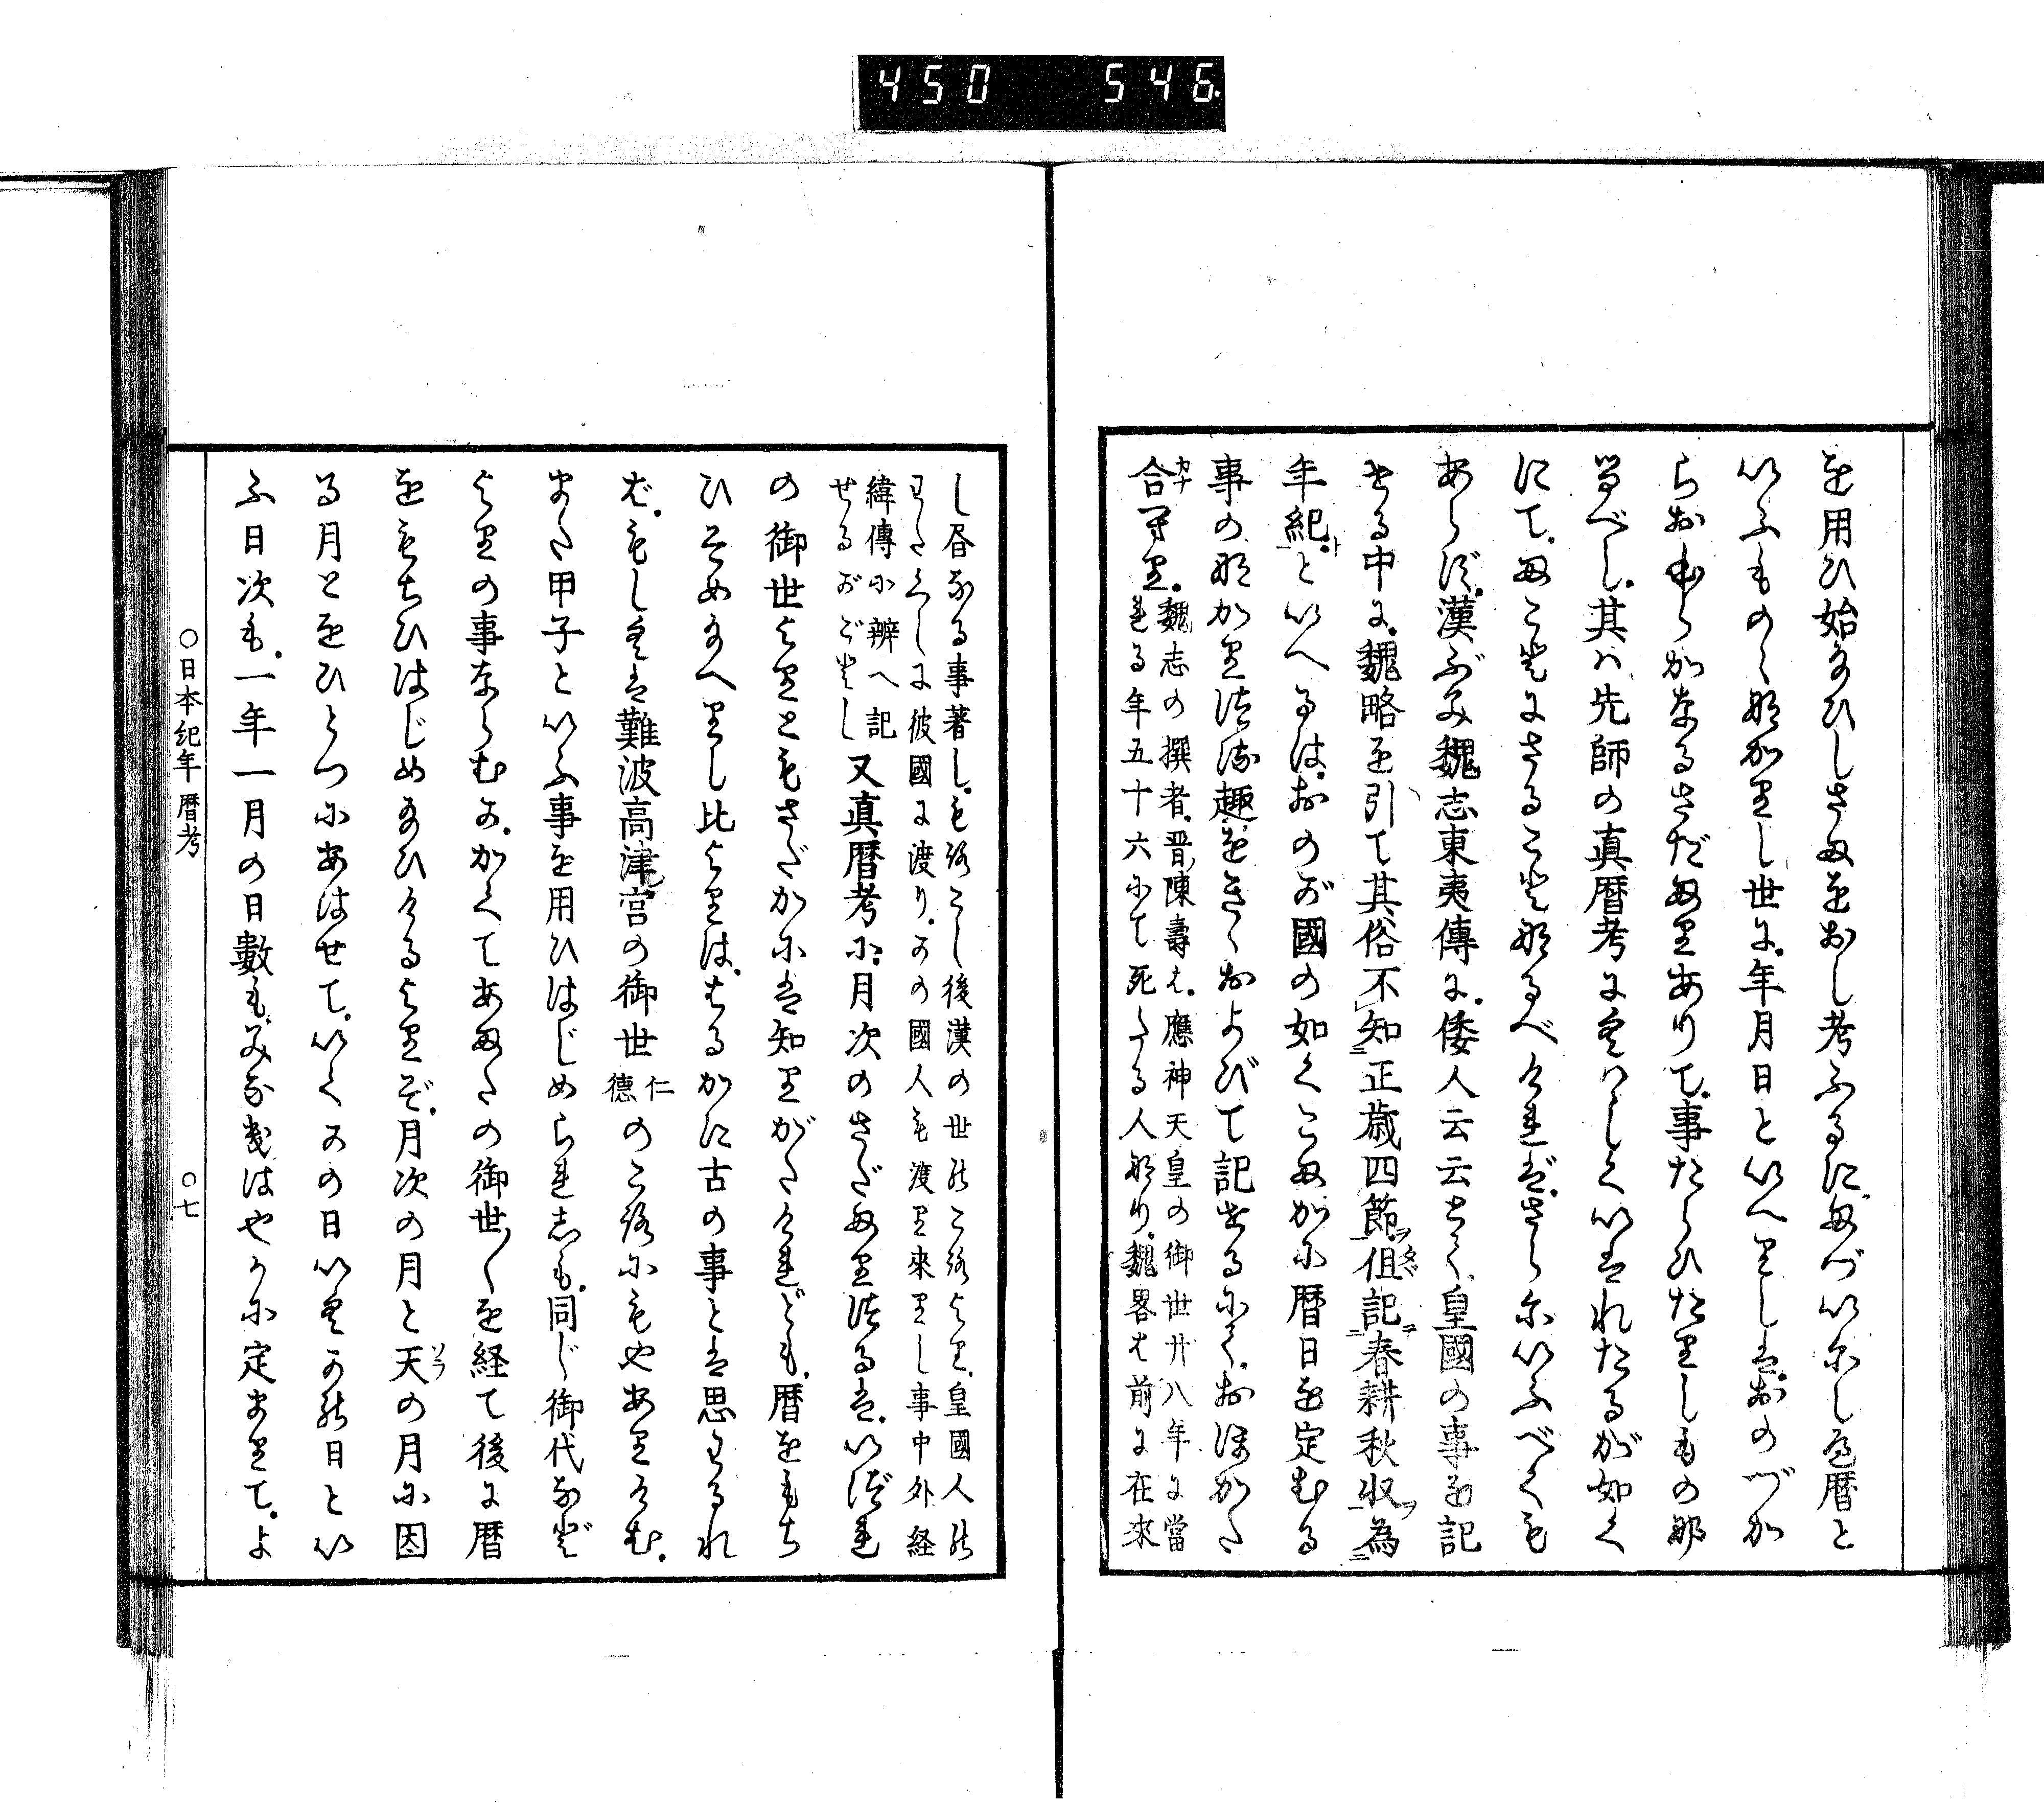 450 546.
を用ひ始給ひしさまをおし考ふるに、まづいにし邊暦と
いふものゝ那かりし世に、年月日といへりしは、おのづか
らおほらかなるさだまりありて、事たらひたりしもの那
るべし、其ハ先師の真暦考に委ハしくいはれたるが如く
にて、まことにさることなるべければ、さらにいふべくも
あらず、漢ぶみ魏志東夷傳に、倭人云云とて、皇國の事を記
せる中に、魏略を引て其俗不知正歳四節、但記春耕秋収為
年紀、といへるは、おのが國の如くこまかに暦日を定むる
事のなかりつる趣をきゝおよびて記せるにて、おほかた
合へり、魏志の撰者、晋陳壽は、應神天皇の御世廿八年に當
れる年五十六にて死たる人なり、魏畧は前に在来
し者なる事著し、もろこし後漢の世のころより、皇國人の
わたくしに彼國に渡り、かの國人も渡り來りし事中外経
緯傳に辨へ記
せるがごとし
又真暦考に、月次のさだまりつるは、いづれ
の御世よりともさだかには知りがたけれども、暦をもち
ひそめ給へりし比よりは、はるかに古の事とは思わるれ
ば、もしくは難波高津宮の御世仁
德のころにもやありけむ、
また甲子といふ事を用ひはじめられしも、同じ御代など
よりの事ならむか、かくてあまたの御世〱を経て後に暦
をもちひはじめ給ひけるよりぞ、月次の月と天の月に因
る月とをひとつにあはせて、いくかの日いくかの日とい
ふ日次も、一年一月の日數も、みな幾はやかに定まりて、よ
○日本紀年暦考
○七